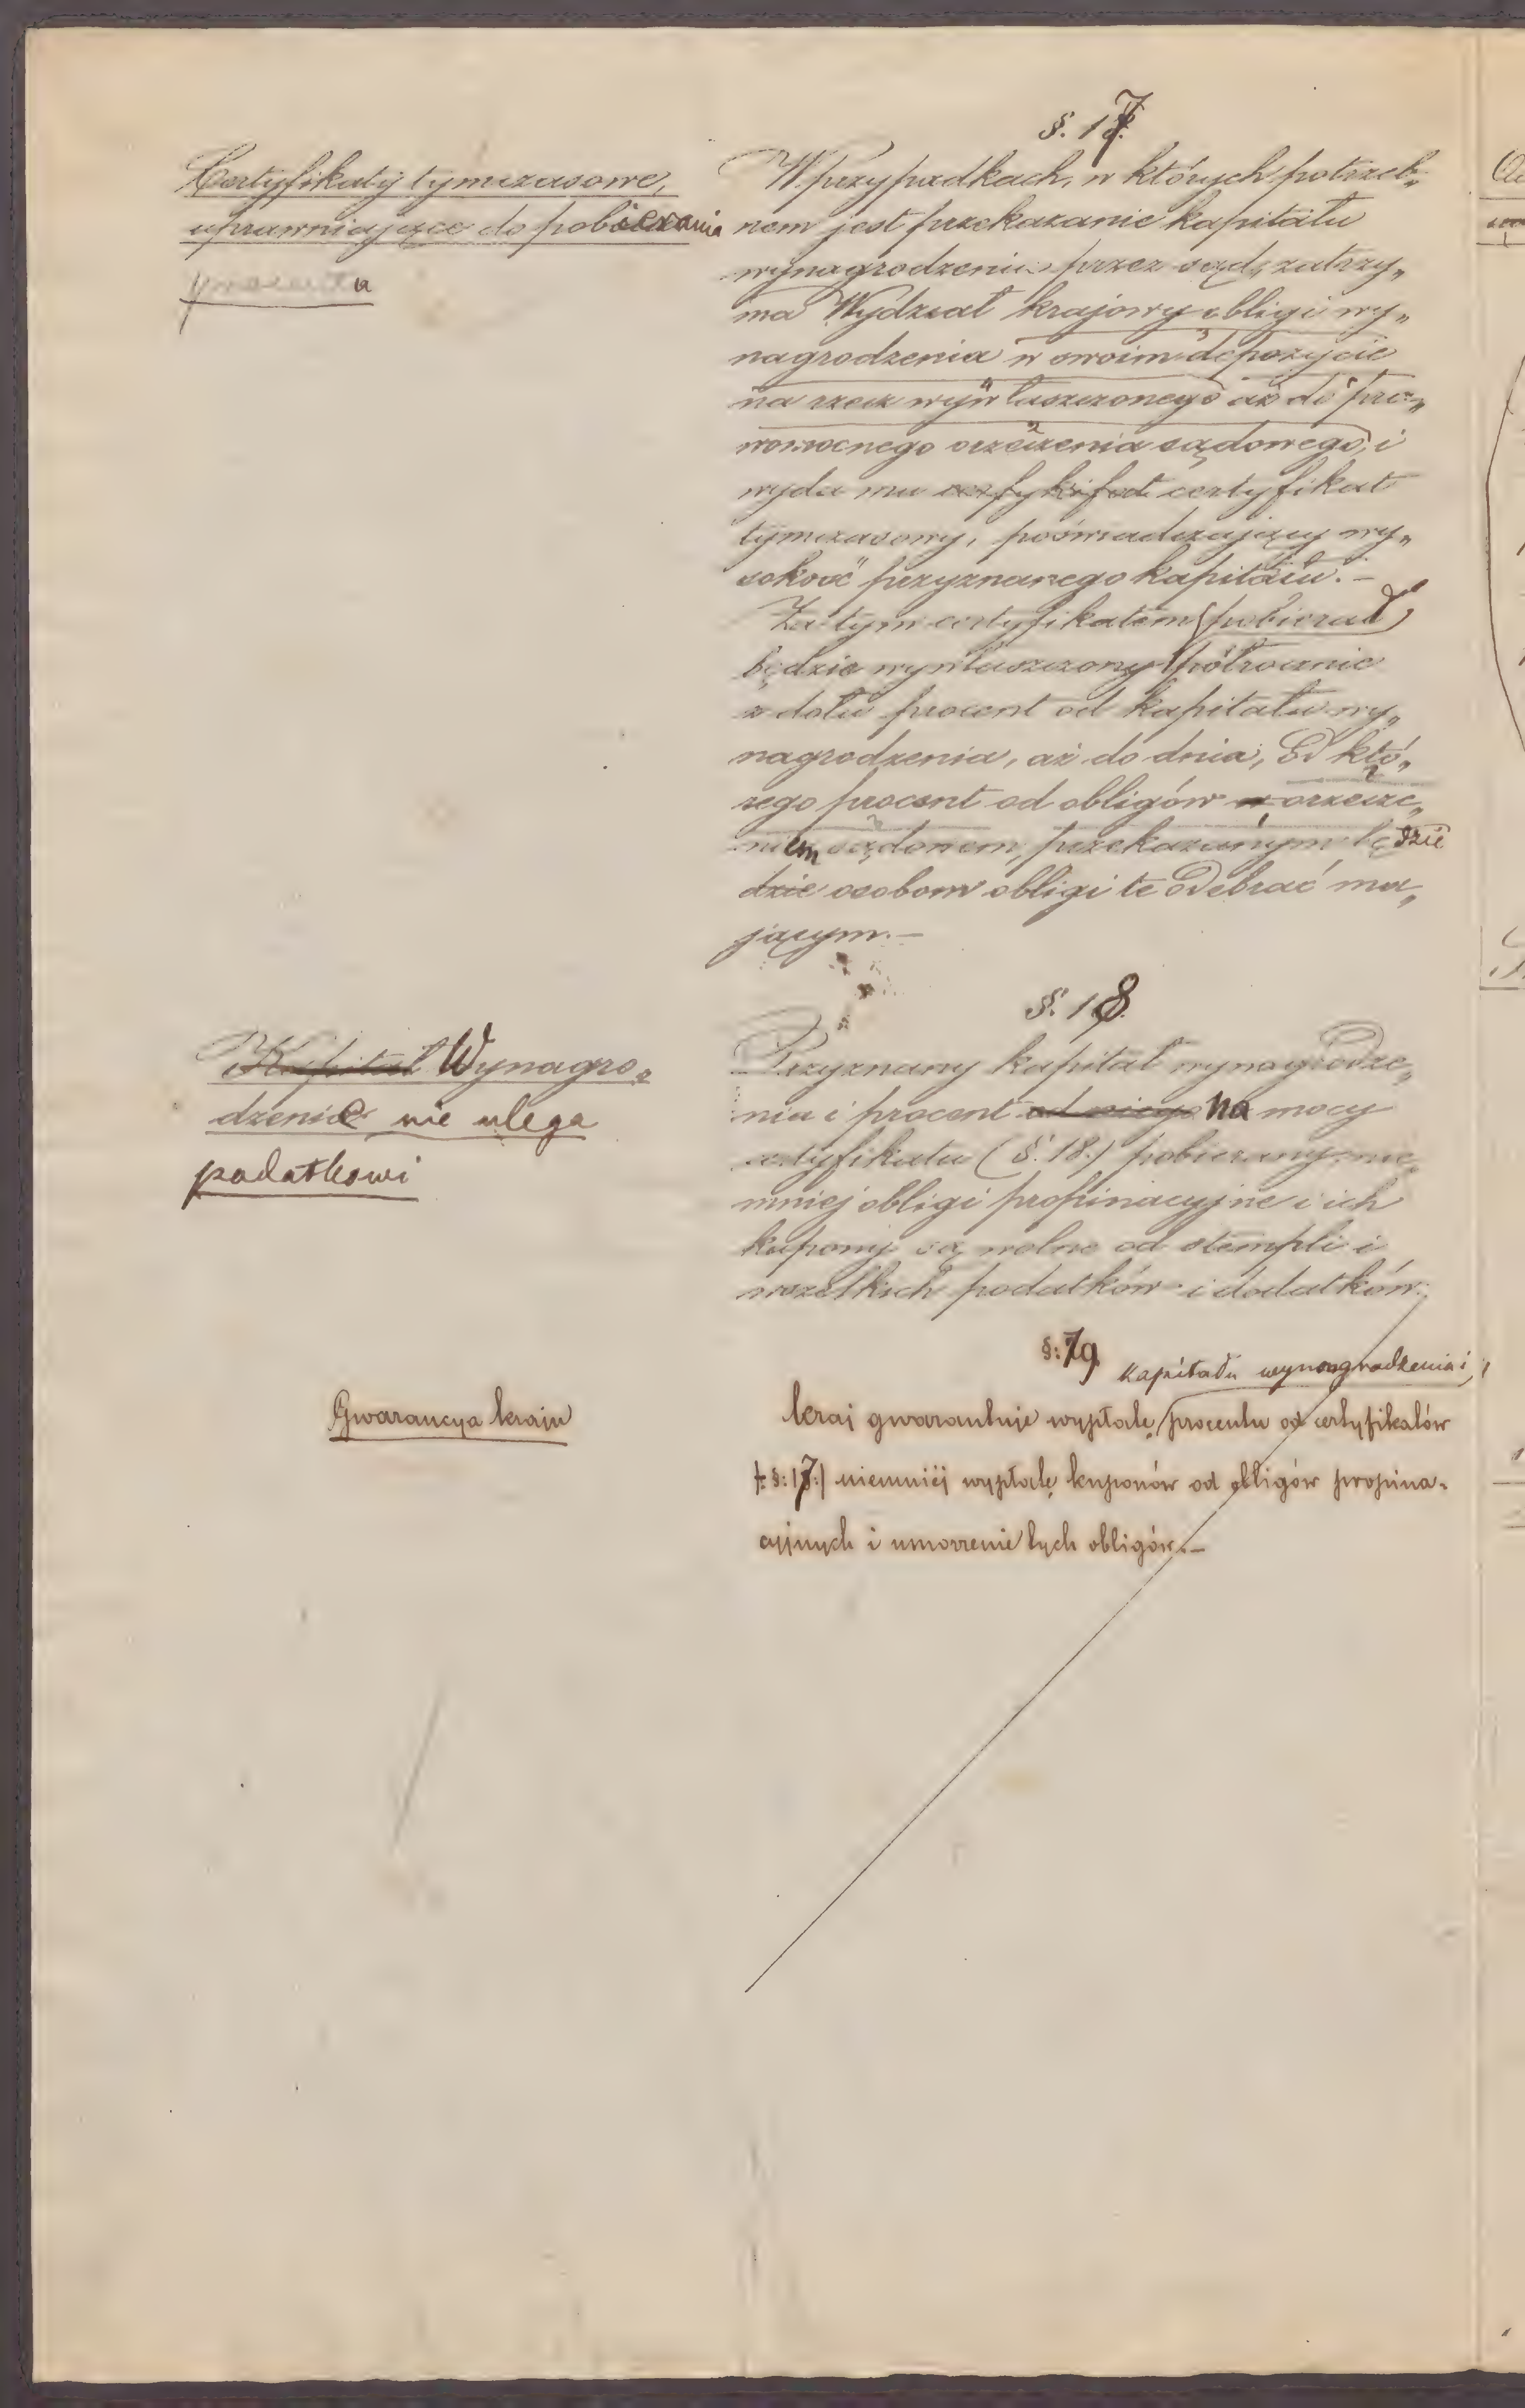 §. 17.
Certyfikaty tymczasowe,
uprawniające do pobierania
procentu
W przypadkach, w których potrzeb„
nem jest przekazanie kapitału
wynagrodzenia przez sąd, zatrzy„
ma Wydział krajowy obligi wy„
nagrodzenia w swoim depozycie
na rzecz wywłaszczonego aż do pra„
womocnego orzeczenia sądowego, i
wyda mu certyfikat
tymczasowy, poświadczający wy„
sokość przyznanego kapitału. —
Za tym certyfikatem pobierać
będzie wywłaszczony półrocznie
z dołu procent od kapitału wy„
nagrodzenia, aż do dnia, od któ„
rego procent od obligów orzecze„
niem sądowem, przekazanym będzie
dzie osobom obligi te odebrać ma„
jącym. —
§. 18.
Kapitał Wynagro„
dzenie nie ulega
podatkowi
Przyznany kapitał wynagrodze„
nia i procent od niego na mocy
certyfikatu (§. 18.) pobierany, nie„
mniej obligi propinacyjne i ich
kupony są wolne od stempli i
wszelkich podatków i dodatków.
§: 19.
kapitału wynagrodzenia i
Gwarancya kraju
kraj gwarantuje wypłatę procentu od certyfikatów
/: §: 17:/ niemniej wypłatę kuponów od obligów propina„
cyjnych i umorzenie tych obligów. —